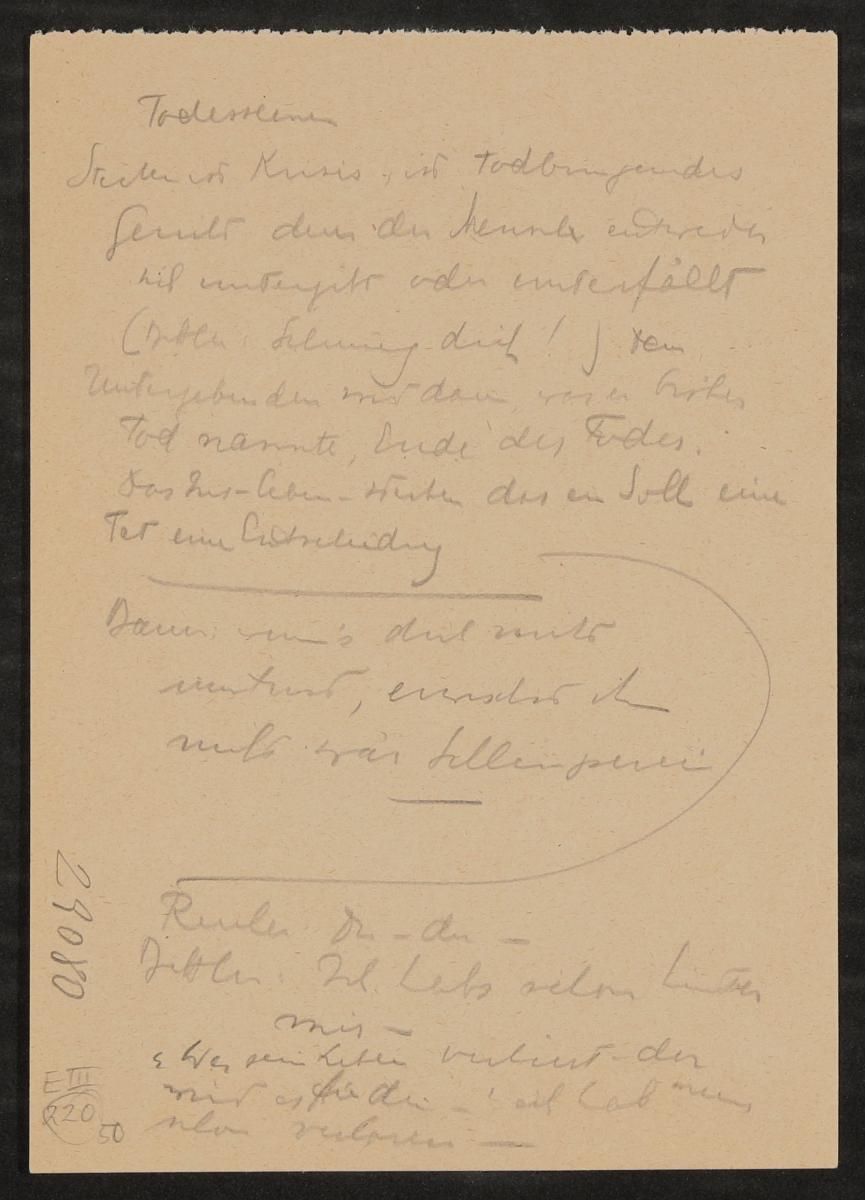 Todesszenen
Sterben ist Krisis, ist todbringendes
Gericht dem der Mensch entweder
sich untergibt oder unterfällt
(Dittler: Schwing dich!) Dem
Untergebenden wird dann, was er bisher
Tod nannte, Ende des Todes.
Das Ins-Leben-Sterben das ein Soll eine
Tat eine Entscheidung
Dann: wem's dich nicht
nicht wär
Du - du -
Dittler: Ich habs schon hinter
mir -
"Wer sein Leben verliert - der
wird es finden - " ich hab meins
schon verloren -
29080
E III
220
50